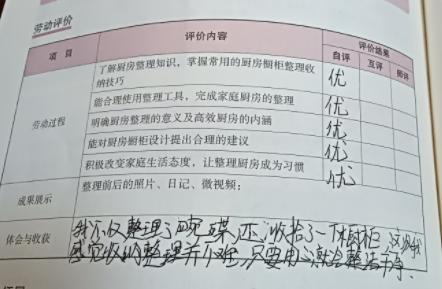 劳动评价
项 目 评价内容 评价结果
自评 互评 师评
劳动过程
了解厨房整理知识，掌握常用的厨房橱柜整理收
纳技巧 优
能合理使用整理工具，完成家庭厨房的整理 优
明确厨房整理的意义及高效厨房的内涵 优
能对厨房厨柜设计提出合理的建议 优
积极改变家庭生活态度，让整理厨房成为习惯 优
成果展示 整理前后的照片、日记、微视频；
体会与收获 我不仅整理了碗碟，还收拾了一下橱柜，这让我
感觉收纳整理并不难，只要用心就会整洁